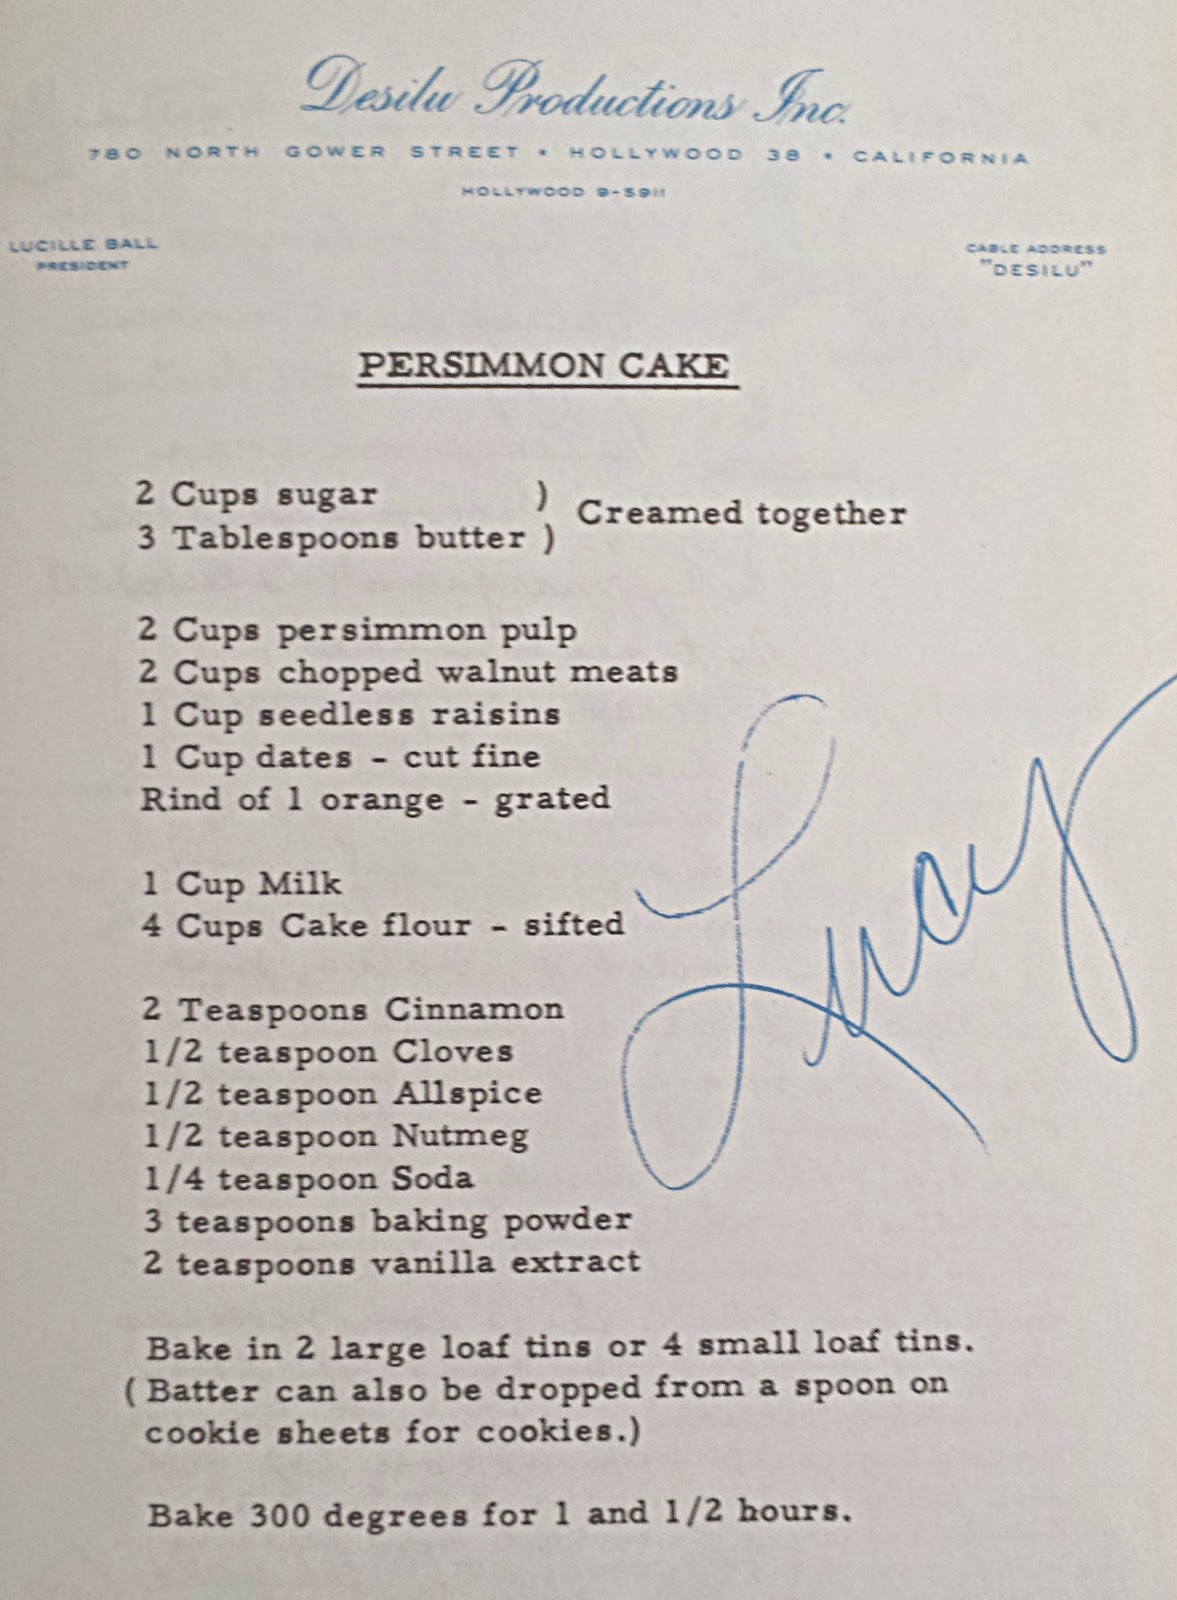 Desilu Productions Inc.
780 NORTH GOWER STREET • HOLLYWOOD 38 • CALIFORNIA
HOLLYWOOD 9-5911
LUCILLE BALL
PRESIDENT
CABLE ADDRESS
"DESILU"
PERSIMMON CAKE
2 Cups sugar )
3 Tablespoons butter ) Creamed together
2 Cups persimmon pulp
2 Cups chopped walnut meats
1 Cup seedless raisins
1 Cup dates - cut fine
Rind of 1 orange - grated
1 Cup Milk
4 Cups Cake flour - sifted
Lucy
2 Teaspoons Cinnamon
1/2 teaspoon Cloves
1/2 teaspoon Allspice
1/2 teaspoon Nutmeg
1/4 teaspoon Soda
3 teaspoons baking powder
2 teaspoons vanilla extract
Bake in 2 large loaf tins or 4 small loaf tins.
( Batter can also be dropped from a spoon on
cookie sheets for cookies.)
Bake 300 degrees for 1 and 1/2 hours.